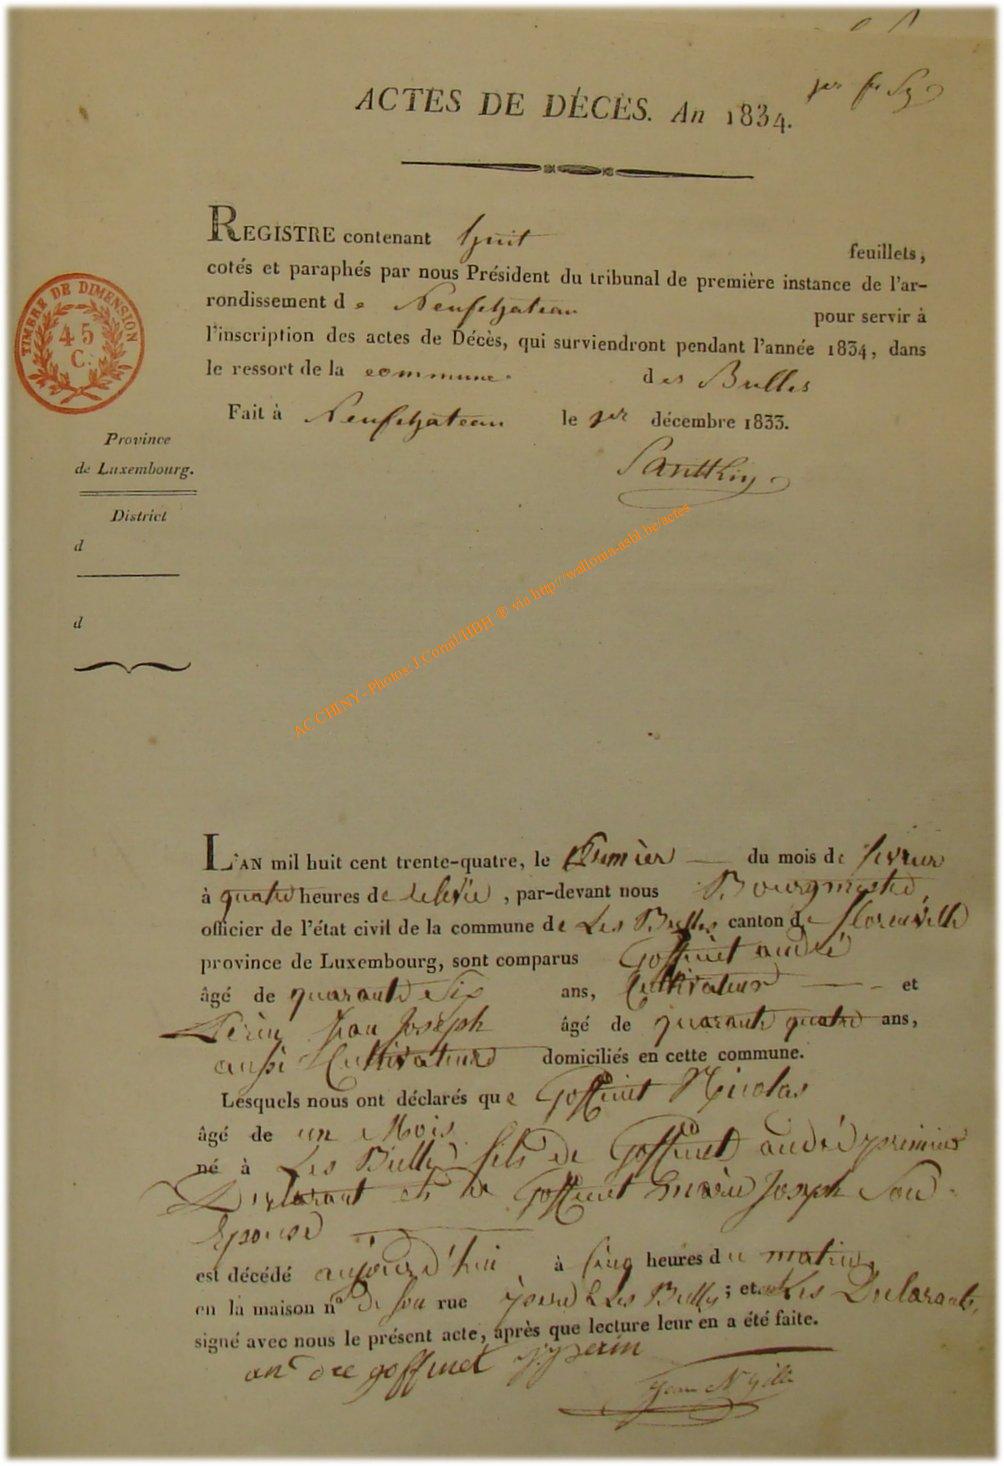 ACTES DE DÉCÈS. An 1834.
REGISTRE contenant huit feuillets,
cotés et paraphés par nous Président du tribunal de première instance de l'ar-
rondissement de Neufchateau pour servir à
l'inscription des actes de Décès, qui surviendront pendant l'année 1834, dans
le ressort de la commune des Bulles
Fait à Neufchateau le 1er décembre 1833.
TIMBRE DE DIMENSION
45
C.
Province
de Luxembourg.
District
d
d
AC CHINY - Photos J.Cornil/HBH ® via http://wallonia-asbl.be/actes
L'AN mil huit cent trente-quatre, le premier du mois de fevrier
à quatre heures de relevée, par-devant nous Bourgmestre,
officier de l'état civil de la commune de Les Bulles canton de florenville
province de Luxembourg, sont comparus Goffinet andré
âgé de quarante Six ans, Cultivateur et
Perin Jean Joseph âgé de quarante quatre ans,
aussi Cultivateur domiciliés en cette commune.
Lesquels nous ont déclarés que Goffinet Nicolas
âgé de un Mois
né à Les Bulles fils de Goffinet andré premier
Déclarant et de Goffinet Marie Joseph Son
Epouse
est décédé aujourd'hui à cinq heures du matin,
en la maison n° de sou rue Les Bulles ; et Les Déclarants,
signé avec nous le présent acte, après que lecture leur en a été faite.
an dre goffinet J J perin
Jean N Gille